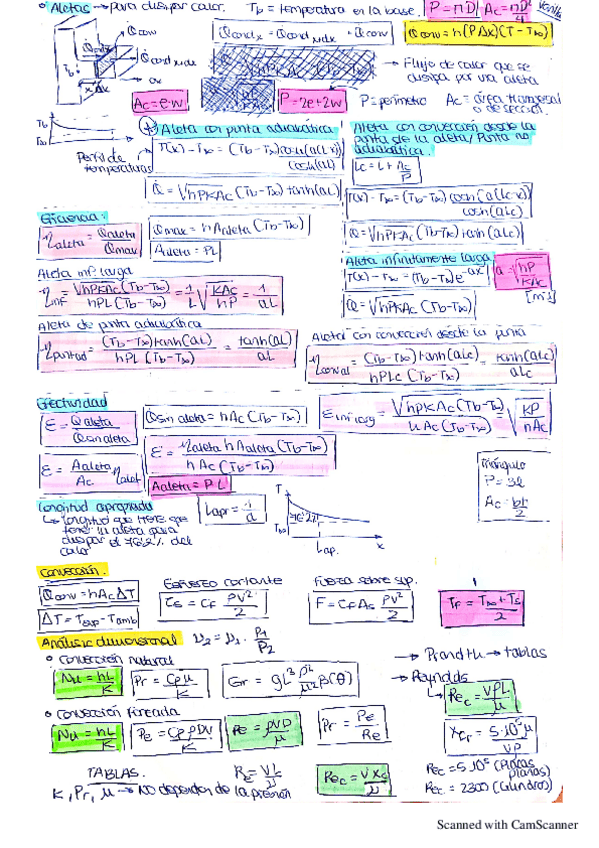 • Aletas → para disipar calor. Tb = temperatura en la base. P = πD Ac = πD²/4
Q̇cond x = Q̇cond x+Δx + Q̇conv
Q̇conv = h(PΔx)(T - T∞)
→ Flujo de calor que se disipa por una aleta
Ac = e·w
P = 2e + 2w
P = perímetro Ac = área transversal o de sección.
Perfil de temperaturas
Aleta con punta adiabática
T(x) - T∞ = (Tb - T∞) cosh(a(L-x)) / cosh(aL)
Q̇ = √hPKAc (Tb - T∞) tanh(aL)
Aleta con convección desde la punta de la aleta / Punta no adiabática.
Lc = L + Ac/P
T(x) - T∞ = (Tb - T∞) cosh(a(Lc-x)) / cosh(aLc)
Q̇ = √hPKAc (Tb - T∞) tanh(aLc)
Eficiencia:
ηaleta = Q̇aleta / Q̇max
Q̇max = h Aaleta (Tb - T∞)
Aaleta = PL
Aleta infinitamente larga
T(x) - T∞ = (Tb - T∞) e^-ax
a = √hP/KAc
[m⁻¹]
Q̇ = √hPKAc (Tb - T∞)
Aleta inf. larga
ηinf = √hPKAc (Tb - T∞) / hPL (Tb - T∞) = 1/L √KAc/hP = 1/aL
Aleta de punta adiabática
= (Tb - T∞) tanh(aL) / hPL (Tb - T∞) = tanh(aL) / aL
Aleta con convección desde la punta
= (Tb - T∞) tanh(aLc) / hPLc (Tb - T∞) = tanh(aLc) / aLc
Efectividad
ε = Q̇aleta / Q̇sin aleta
Q̇sin aleta = hAc (Tb - T∞)
= √hPKAc (Tb - T∞) / hAc (Tb - T∞) = √KP/hAc
ε = Aaleta/Ac ηaleta
ε = ηaleta h Aaleta (Tb - T∞) / h Ac (Tb - T∞)
Aaleta = PL
Triángulo
P = 3l
Ac = bh/2
Longitud apropiada
↳ longitud que tiene que tener la aleta para disipar el 76'2% del calor
Lapr = 1/a
T
T∞
76'2%
Lap.
x
Convección.
Q̇conv = hAcΔT
ΔT = Tsup - Tamb
Esfuerzo cortante
τs = Cf ρV²/2
Fuerza sobre sup.
F = Cf As ρV²/2
Tf = (T∞ + Ts)/2
Análisis dimensional ν2 = ν1 · P1/P2
• Convección natural
Nu = hL/K
Pr = Cpμ/K
Gr = gL³ ρ²/μ² β(θ)
→ Prandtl → tablas
→ Reynolds
↳ Rec = VρL/μ
• Convección forzada
Nu = hL/K
Pe = CpρDV/K
Re = ρVD/μ
Pr = Pe/Re
Xcr = 5·10⁵μ/Vρ
TABLAS.
K, Pr, μ → NO dependen de la presión
Re = VL/ν
Rec = 5·10⁵ (Placas planas)
Rec = 2300 (Cilindros)
Scanned with CamScanner